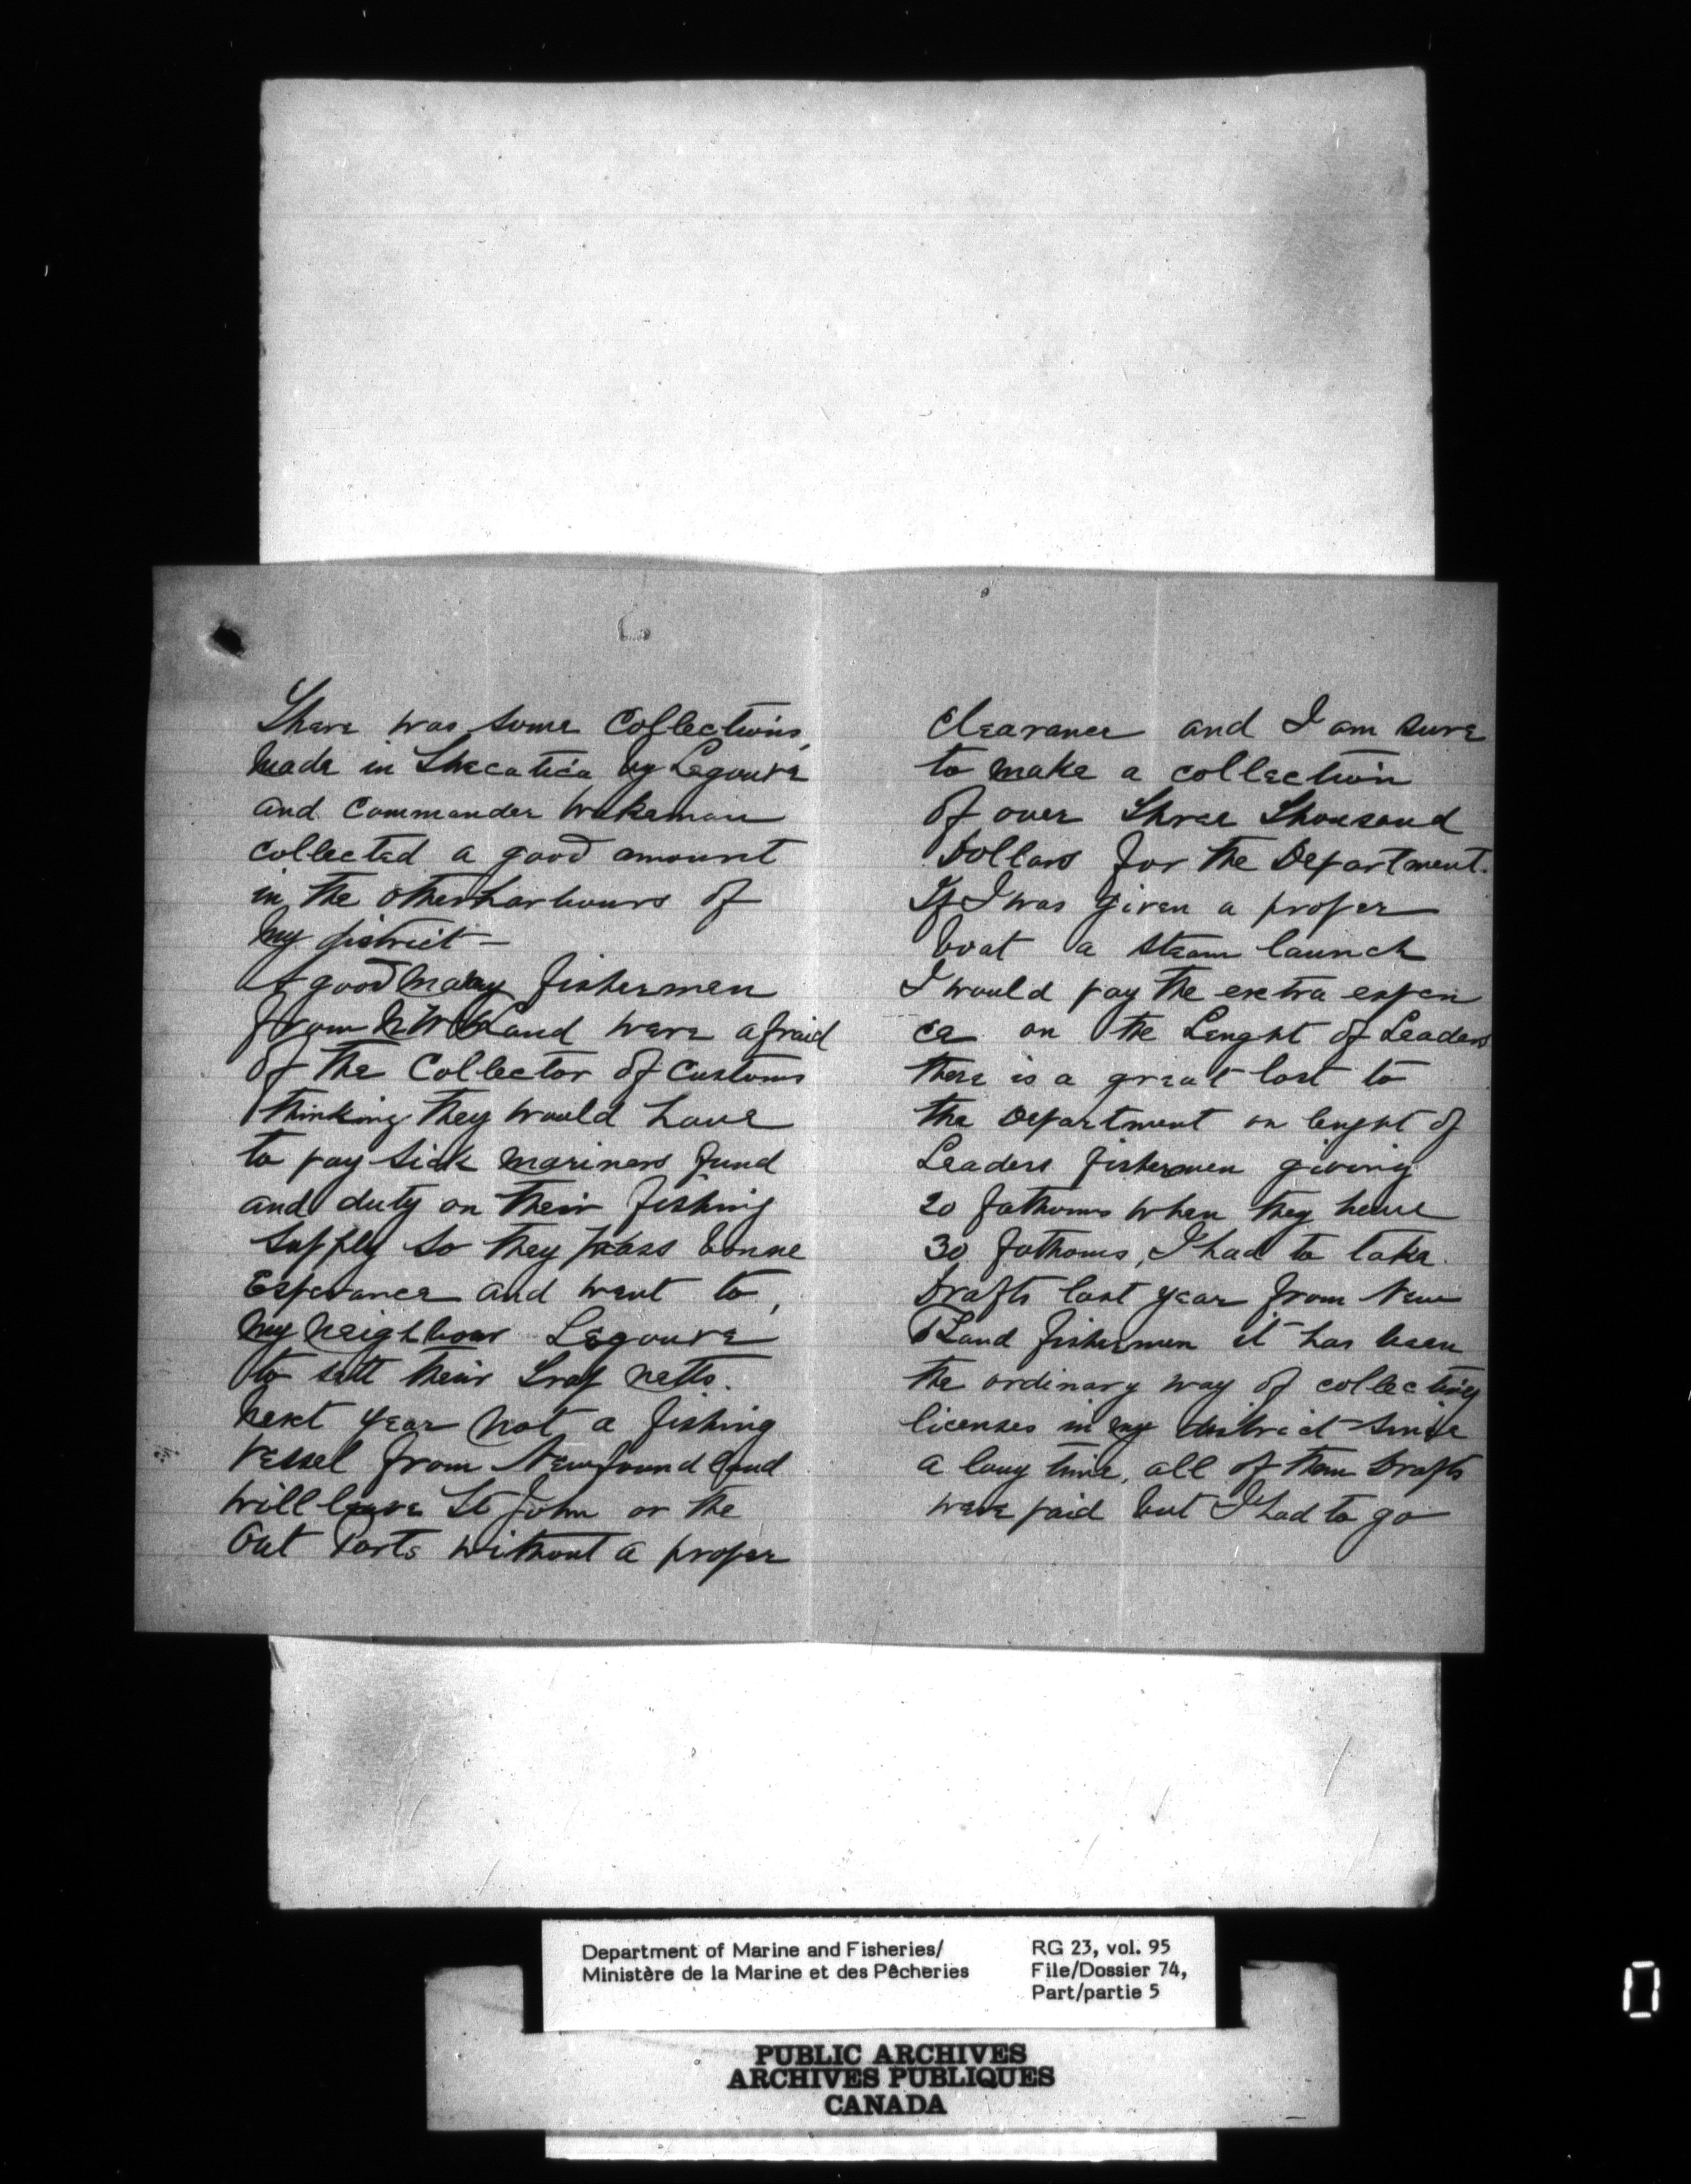 There was some Collections,
made in Shecatica by Legouve
and Commander Wakeman
collected a good amount
in the other harbours of
my district —
A good many fishermen
from N.W. Land were afraid
of the Collector of Customs
thinking they would have
to pay sick mariners fund
and duty on their fishing
supply so they pass bonne
Esperance and went to,
my neighbour Legouve
to sett their Trap netts.
next year not a fishing
vessel from Newfoundland
will leave St John or the
Out Ports without a proper
clearance and I am sure
to make a collection
of over Three Thousand
Dollars for the Department.
If I was given a proper
boat a steam launch
I would pay the extra expen
ce on the Lenght of Leaders
there is a great lost to
the Department on lenght of
Leaders fishermen giving
20 fathoms when they have
30 fathoms, I had to take
Drafts last year from New
Land fishermen it has been
the ordinary way of collecting
licenses in my district since
a long time, all of them Drafts
were paid but I had to go
Department of Marine and Fisheries/
Ministère de la Marine et des Pêcheries
RG 23, vol. 95
File/Dossier 74,
Part/partie 5
PUBLIC ARCHIVES
ARCHIVES PUBLIQUES
CANADA